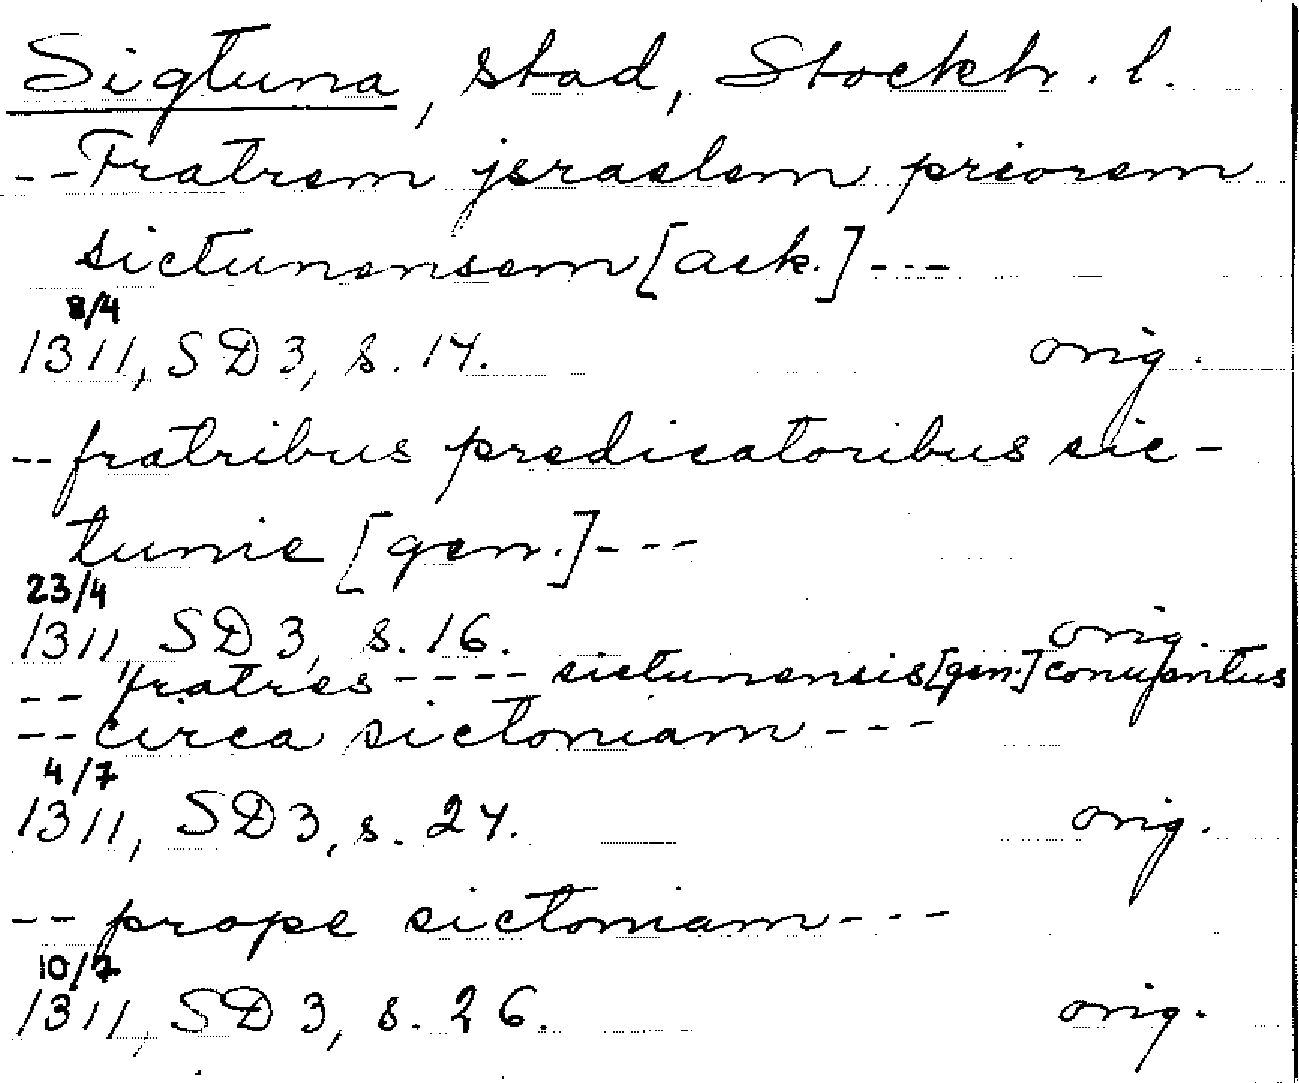 Sigtuna, stad, Stockh. l.
-- Fratrem jsraelem priorem
sictunensem [ack.] ---
8/4
1311, SD 3, s. 14. orig.
-- fratribus predicatoribus sic-
tunie [gen.] ---
23/4
1311, SD 3, s. 16. orig.
-- fratres ---- sictunensis [gen.] conuentus
-- circa sictoniam ---
4/7
1311, SD 3, s. 24. orig.
-- prope sictoniam ---
10/7
1311, SD 3, s. 26. orig.